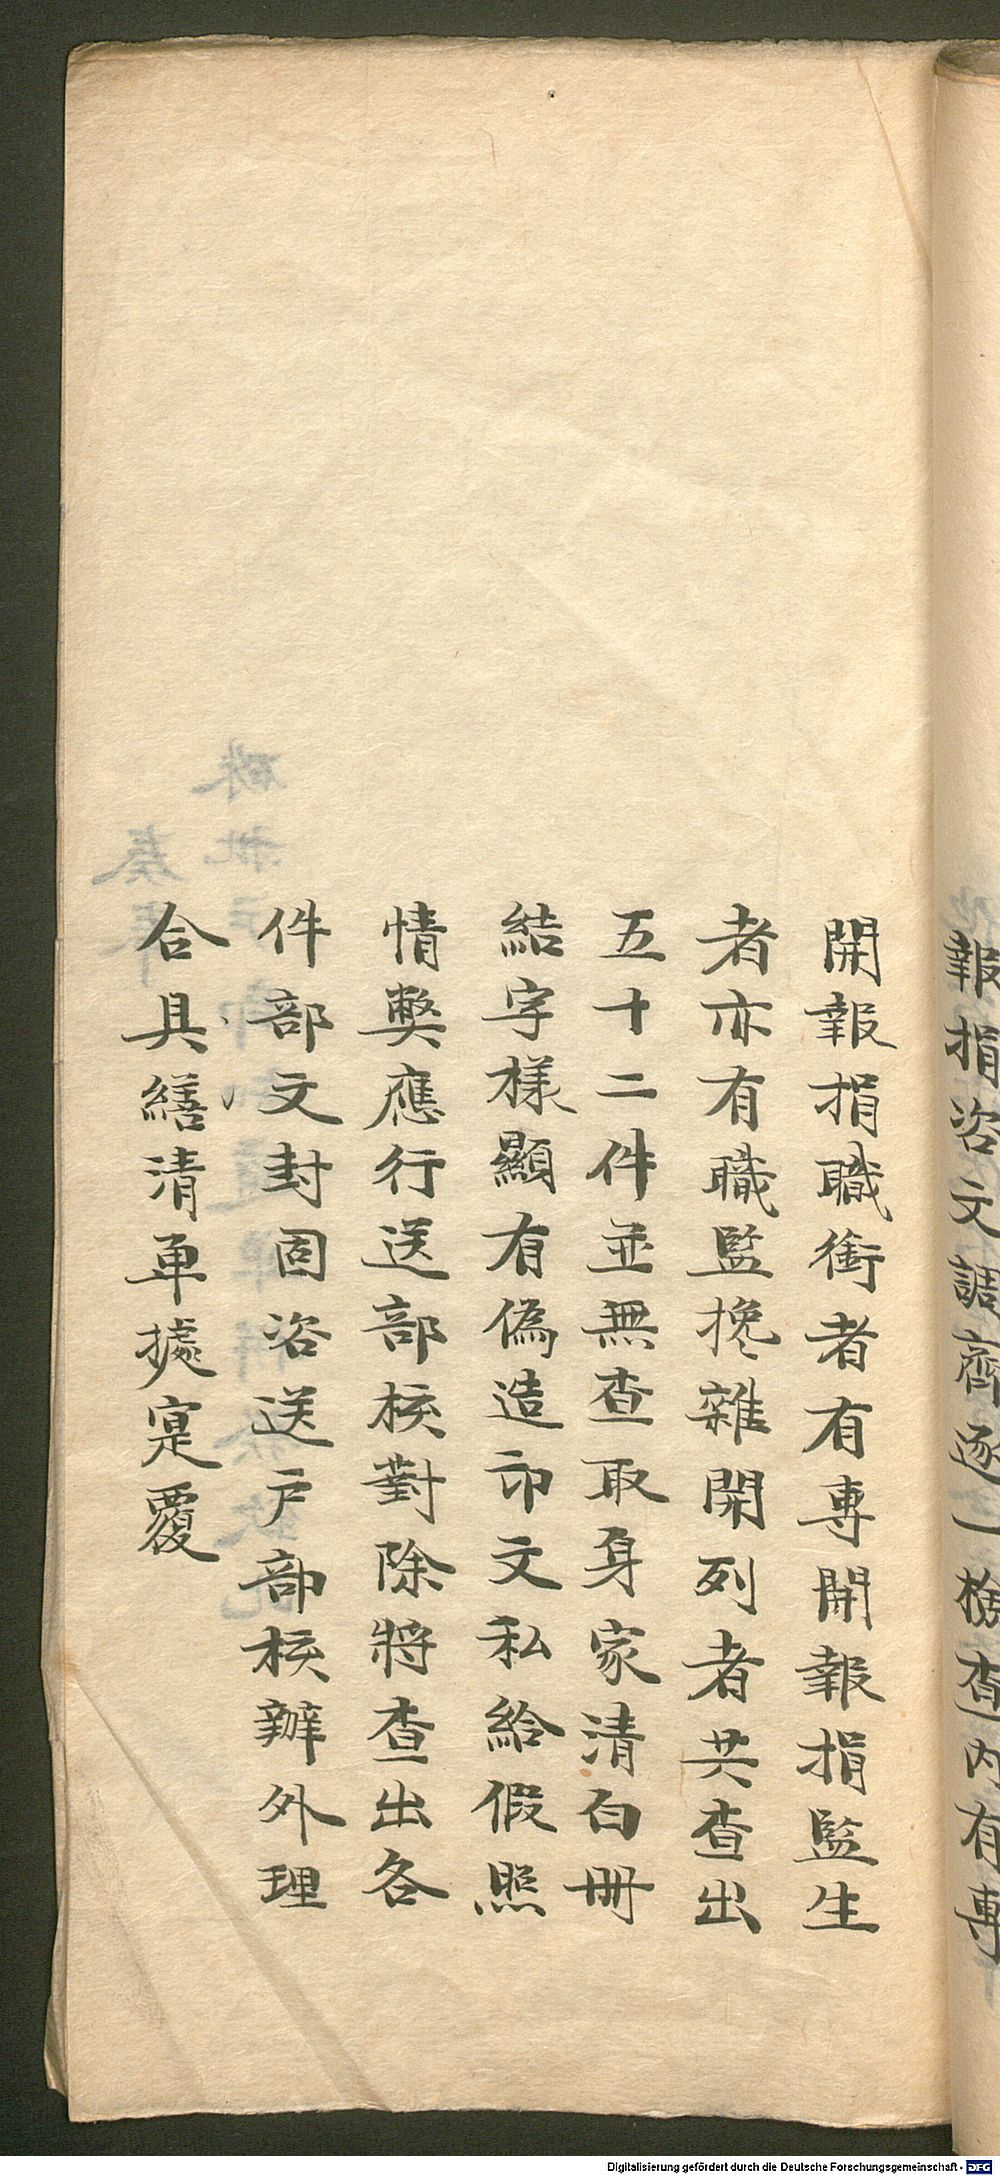 報捐咨文調齊逐一檢查內有專
開報捐職銜者有專開報捐監生
者亦有職監搀雜開列者共查出
五十二件並無查取身家清白冊
結字樣顯有偽造印文私給假照
情獘應行送部核對除將查出各
件部文封固咨送戶部核辦外理
合具繕清单據寔覆
Digitalisierung gefördert durch die Deutsche Forschungsgemeinschaft - DFG